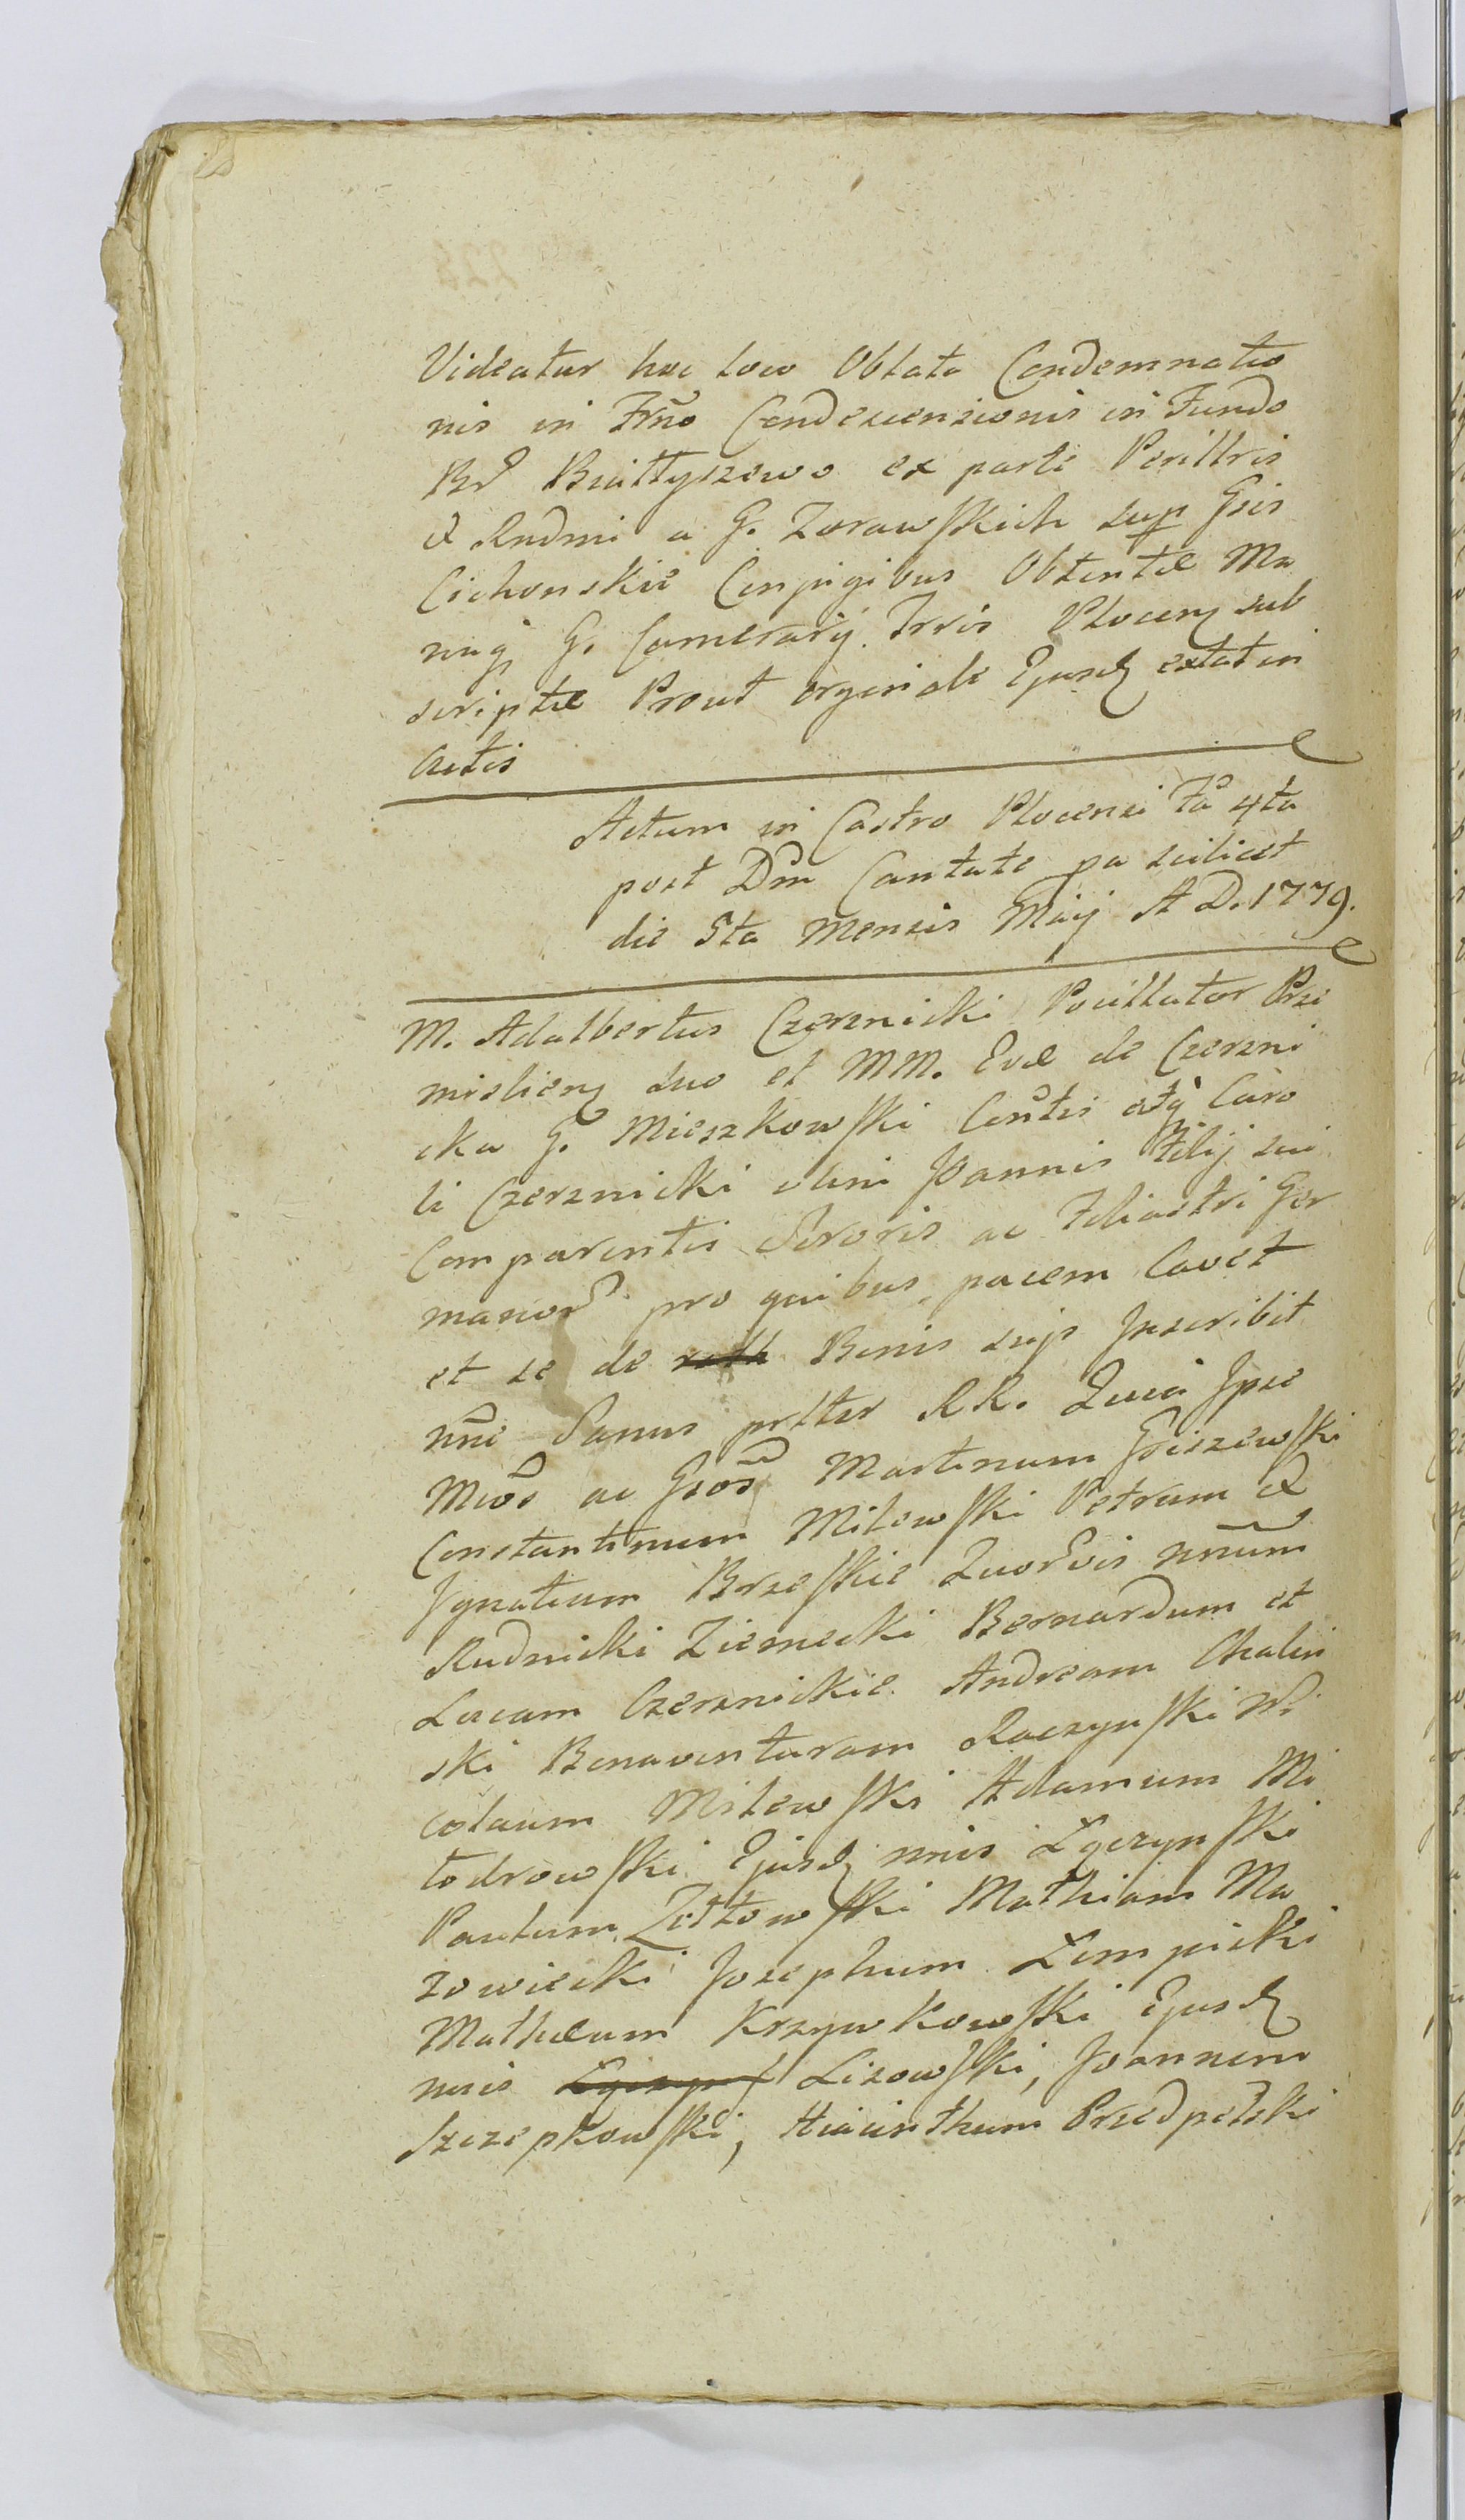 Videatur hoc loco Oblata Condemnatio
nis in Trno Condescensionis in Fundo
Bd Białłyszewo ex parte Perilltris
& Rndmi a G. Zorawskich sup Gsis
Cichonskie Conjugibus Obtentæ Ma
nuq G. Camerarij Trris Plocen sub
scriptæ Prout originale Ejusd extat in
Actis
Actum in Castro Plocensi Fa 4ta
post Dnm Cantate pa scilicet
die 5ta Mensis Maij A D. 1779.
M. Adalbertus Czerznicki Pocillator Prze
mislien suo et MM. Evæ de Czerzni
cka G. Mieszkowski Contis atq Caro
li Czerznicki olim Joannis Filij sui
Comparentis Sororis ac Filiastri Ger
manor pro quibus pacem Cavet
et se de Bonis suis Inscribit
nne Sanus prltter RR. Quia Ipse
Mcos ac Gsos Martinum Griszewski
Constantinum Milewski Petrum &
Ignatium Brzeskie Quorvis nnum
Rudnicki Ziemecki Bernardum et
Lucam Czerznickie Andream Chalin
ski Bonaventuram Raczynski Ni
colaum Milewski Adamum Mi
lodrowski Ejusd nnis Lęczynski
Paulum Zołtowski Mathiam Ma
zowiecki Josephum Lempicki
Mathæum Krzywkowski Ejusd
nnis Lisowski, Joannem
Szczepkowski, Hiacinthum Przedpełski